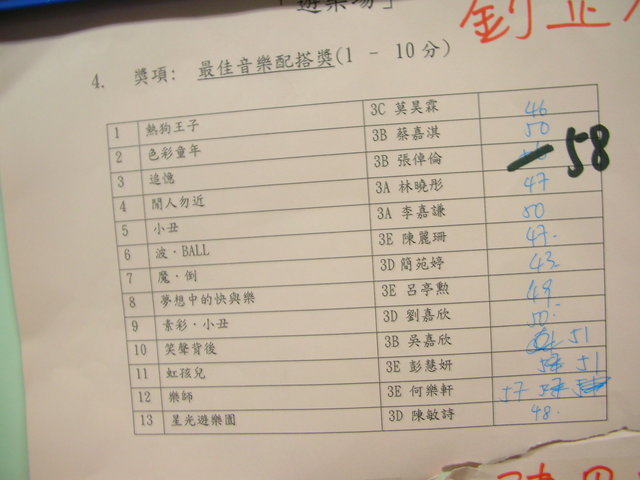 「遊樂場」
4. 獎項: 最佳音樂配搭獎(1 - 10分)
1 熱狗王子 3C 莫昊霖 46
2 色彩童年 3B 蔡嘉淇 50
3 追憶 3B 張偉倫 58
4 閒人勿近 3A 林曉彤 47
5 小丑 3A 李嘉謙 50
6 波·BALL 3E 陳麗珊 47.
7 魔·倒 3D 簡苑婷 43.
8 夢想中的快與樂 3E 呂亭勲 49.
9 素彩·小丑 3D 劉嘉欣 50.
10 笑聲背後 3B 吳嘉欣 51
11 虹孩兒 3E 彭慧妍 51
12 樂師 3E 何樂軒 57
13 星光遊樂園 3D 陳敏詩 48.